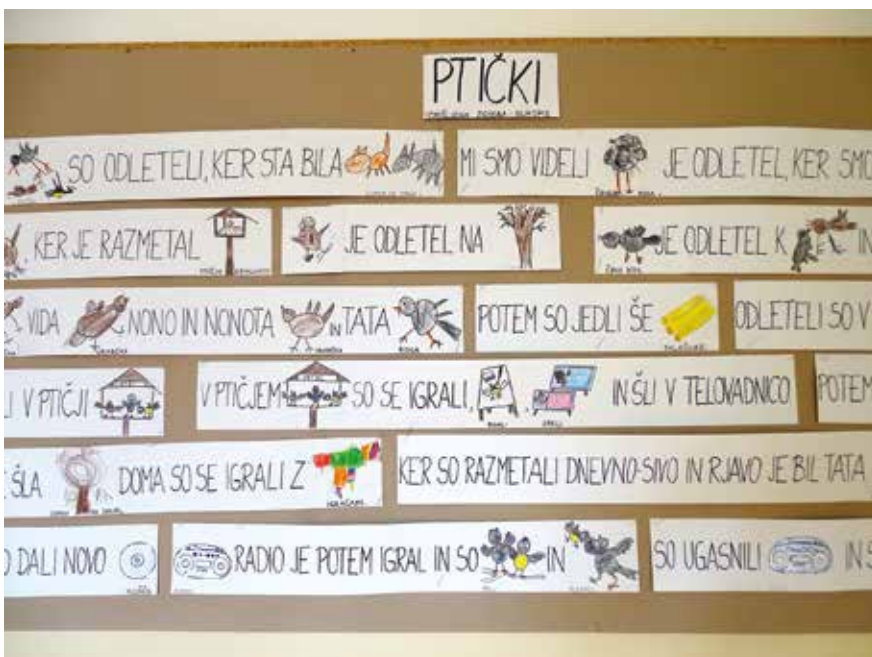 PTIČKI
SO ODLETELI, KER STA BILA
MI SMO VIDELI JE ODLETEL, KER SMO
KER JE RAZMETAL
JE ODLETEL NA
JE ODLETEL K IN
VIDA NONO IN NONOTA IN TATA
POTEM SO JEDLI ŠE
ODLETELI SO V
LI V PTIČJI
V PTIČJEM SO SE IGRALI, , IN ŠLI V TELOVADNICO
POTEM
ŠLA DOMA SO SE IGRALI Z
KER SO RAZMETALI DNEVNO SIVO IN RJAVO JE BIL TATA
O DALI NOVO
RADIO JE POTEM IGRAL IN SO IN
SO UGASNILI IN S